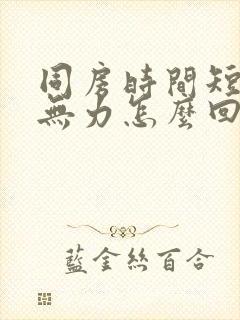 同房時間短
無力怎麼回
藍金絲百合